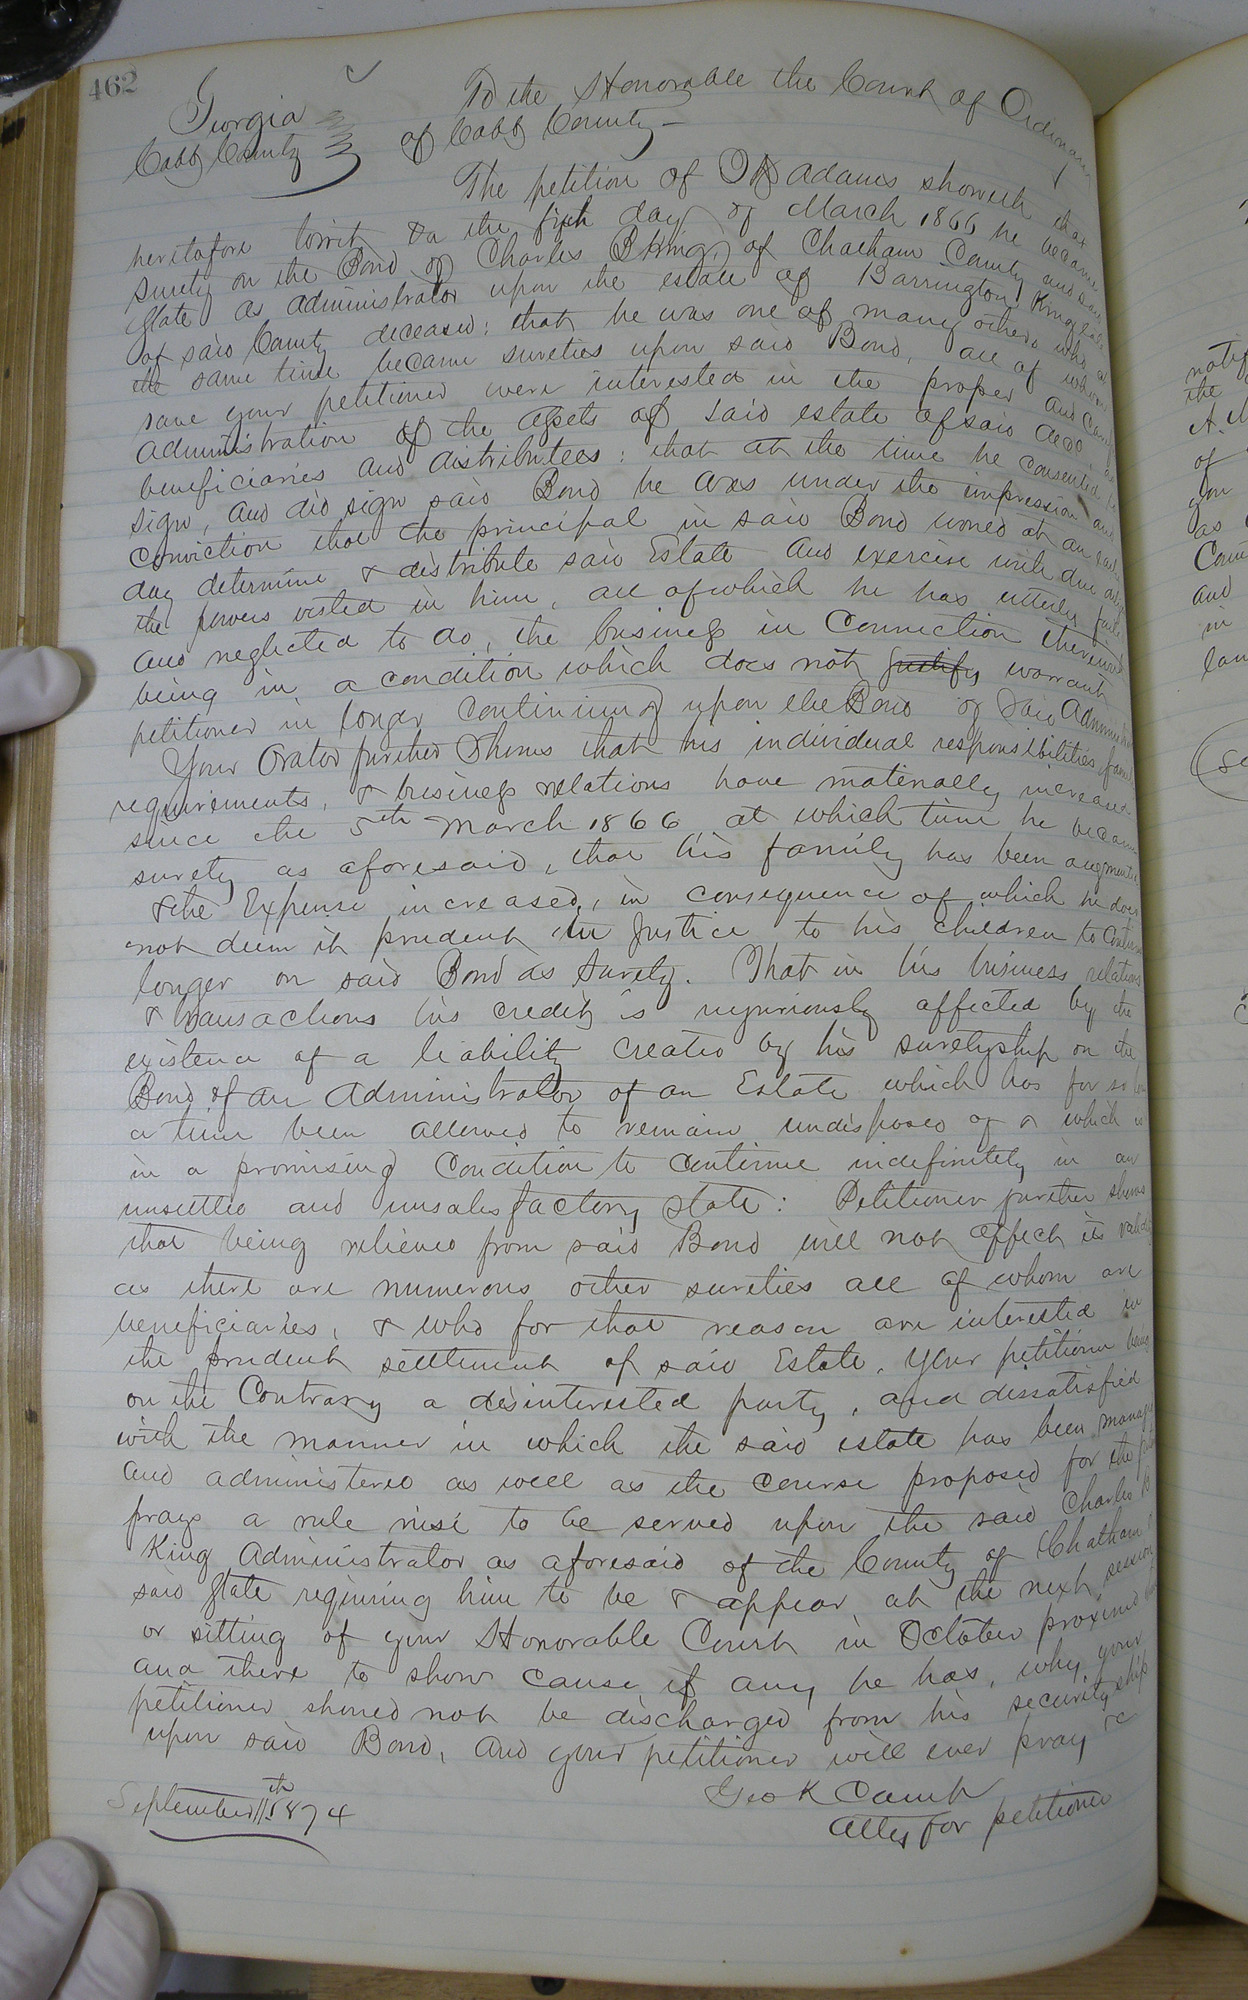 462
Georgia
Cobb County
To the Honorable the Court of Ordinary
of Cobb County—
The petition of Adams showeth that
heretofore towit on the fifth day of March 1866 he became
surety on the Bond of Charles B King, of Chatham County and said
State as administrator upon the estate of Barrington King late
of said County deceased; that he was one of many others who at
the same time became sureties upon said Bond, all of whom
save your petitioner were interested in the proper and
administration of the assets of said estate of said decd as
beneficiaries and distributees: that at the time he consented to
sign, and did sign said Bond he was under the impression and
conviction that the principal in said Bond would at an early
day determine & distribute said Estate and exercise with due
the powers vested in him, all of which he has utterly failed
and neglected to do, the business in Connection therewith
being in a condition which does not justify warrant
petitioner in longer continuing upon the Bond of said
Your Orator further Shows that his individual responsibilities, family
requirements, & business relations have materially increased
since the 5th March 1866 at which time he became
surety as aforesaid, that his family has been augmented
& the Expense increased, in consequence of which he does
not deem it prudent in Justice to his children to continue
longer on said Bond as Surety. That in his business relations
& transactions his credit is injuriously affected by the
existence of a liability created by his suretyship on the
Bond of an Administrator of an Estate which has for so long
a time been allowed to remain undisposed of & which is
in a promising Condition to continue indefinitely in an
unsettled and unsatisfactory state: Petitioner further shows
that being relieved from said Bond will not affect its validity
as there are numerous other sureties all of whom are
beneficiaries, & who for that reason are interested in
the prudent settlement of said Estate. Your petitioner being
on the Contrary a disinterested party, and dissatisfied
with the manner in which the said estate has been managed
and administered as well as the course proposed for the
prays a rule nisi to be served upon the said Charles B
King Administrator as aforesaid of the County of Chatham
said State requiring him to be & appear at the next session
or sitting of your Honorable Court in October proximo
and there to show cause if any he has, why your
petitioner should not be discharged from his securityship
upon said Bond, and your petitioner will ever pray &c
Geo K Camp
Atty for petitioner
September 11th 1874